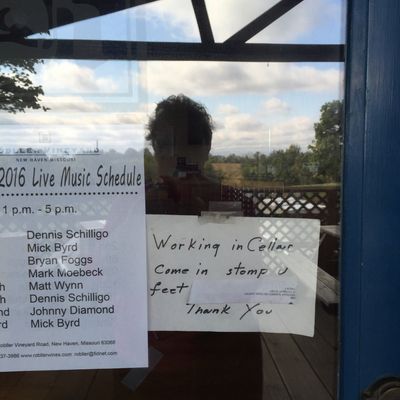 VINEYARD
NEW HAVEN MISSOURI
2016 Live Music Schedule
1 p.m. - 5 p.m.
Dennis Schilligo
Mick Byrd
Bryan Foggs
Mark Moebeck
Matt Wynn
Dennis Schilligo
Johnny Diamond
Mick Byrd
Vineyard Road, New Haven, Missouri 63068
37-3986 www.roblerwines.com robller@fidnet.com
Working in Cellar
Come in stomp
feet
Thank You